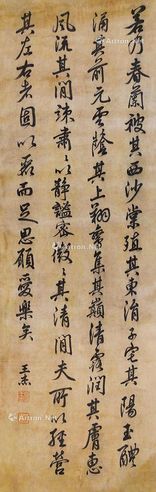 若乃春蘭被其西沙棠殖其東涓子宅其陽玉醴
涌其前元雲蔭其上翔鸞集其巔清露潤其膚惠
風流其間竦肅肅以靜謐密微微其清閒夫所以經營
其左右者固以而足思願愛樂矣
王杰